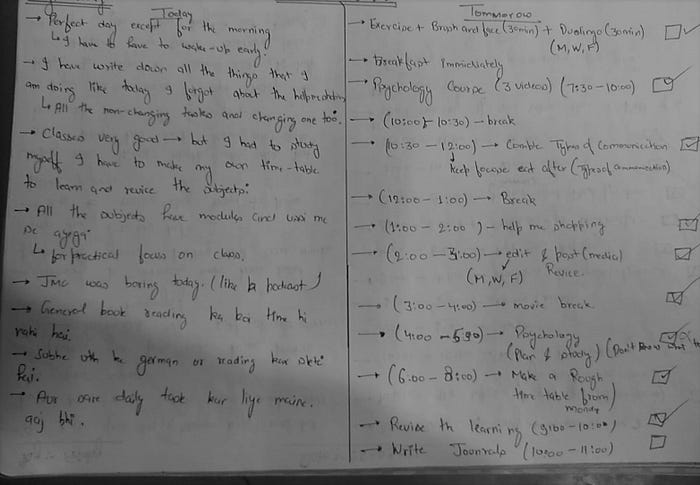 Today
→ Perfect day except for the morning
↳ I have to have to wake-up early.
→ I have write down all the things that I
am doing like today I forgot about the
↳ All the non-changing tasks and changing one too.
→ Classes very good → but I had to study
myself I have to make my own time-table
to learn and revice the subjects.
→ All the subjects have modules and usi me
se ayega
↳ for practical focus on class.
→ JMC was boring today. (like a podcast)
→ General book reading ka bar time hi
nahi hai.
→ Subhe uth ke german or reading kar skte
hai.
→ Aur sare daily task kar liye maine.
aaj bhi.
Tommorow
→ Exercise + Brush and face (30min) + Duolingo (30min)
(M, W, F)
→ Breakfast Immidiately
→ Psychology Course (3 videos) (7:30 - 10:00)
→ (10:00 - 10:30) - break
→ (10:30 - 12:00) → Types of Communication
keep focuse eat after (Types of communication)
→ (12:00 - 1:00) → Break
→ (1:00 - 2:00) - help me shopping
→ (2:00 - 3:00) → edit & post (media)
(M, W, F) Revice.
→ (3:00 - 4:00) → movie break.
→ (4:00 - 5:30) → Psychology
(Plan & study) (Don't know
→ (6:00 - 8:00) → Make a Rough
time table from
monday
→ Revise th learning (9:00 - 10:00)
→ Write Journals (10:00 - 11:00)